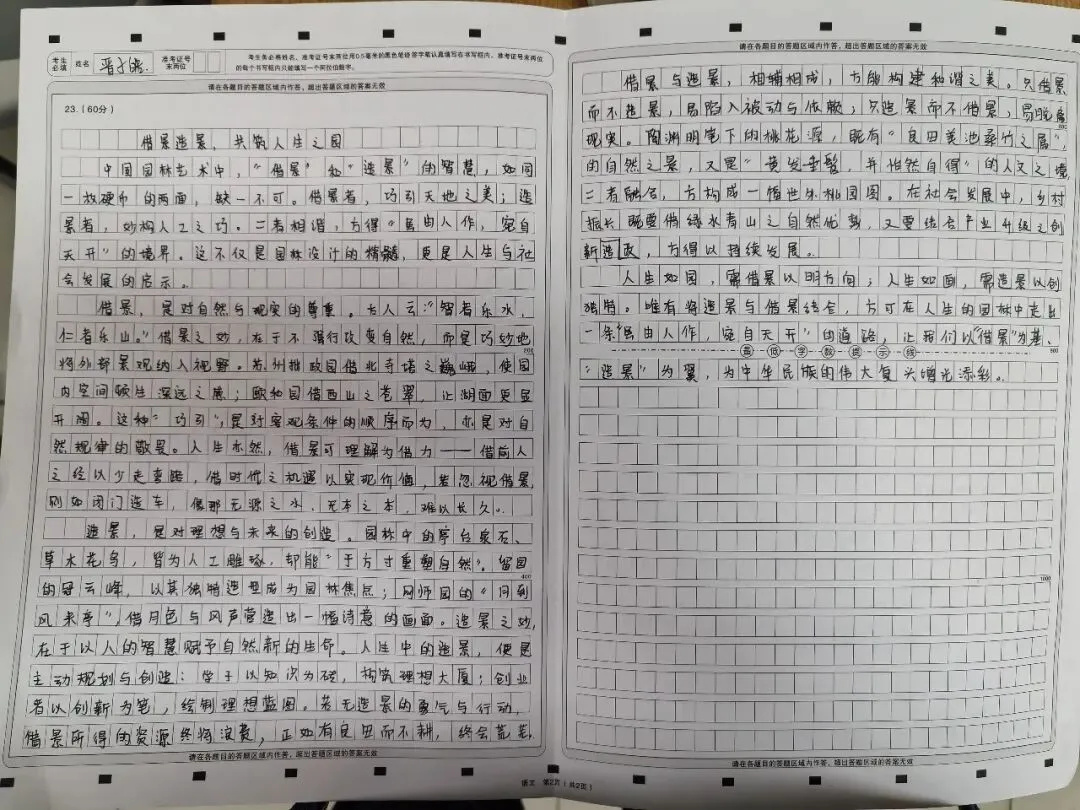 考生必填 姓名 准考证号末两位
考生务必将姓名、准考证号末两位用0.5毫米的黑色笔迹签字笔认真填写在书写框内，准考证号末两位的每个书写框内只能填写一个阿拉伯数字。
请在各题目的答题区域内作答，超出答题区域的答案无效
23.（60分）
借景造景，共筑人生之园
中国园林艺术中，“借景”和“造景”的智慧，如同
一枚硬币的两面，缺一不可。借景者，巧引天地之美；造
景者，妙构人工之巧。二者相谐，方得“虽由人作，宛自
天开”的境界。这不仅是园林设计的精髓，更是人生与社
会发展的启示。
借景，是对自然与现实的尊重。古人云：“智者乐水，
仁者乐山。”借景之妙，在于不强行改变自然，而是巧妙地
200
将外部景观纳入视野。苏州拙政园借北寺塔之巍峨，使园
内空间顿生深远之感；颐和园借西山之苍翠，让湖面更显
开阔。这种“巧引”，是对客观条件的顺序而为，亦是对自
然规律的敬畏。人生亦然，借景可理解为借力——借前人
之经以少走弯路，借时代之机遇以实现价值，若忽视借景，
则如闭门造车，像那无源之水，无本之木，难以长久。
造景，是对理想与未来的创造。园林中的亭台泉石、
草木花鸟，皆为人工雕琢，却能“于方寸重塑自然”。留园
400
的冠云峰，以其独特造型成为园林焦点；网师园的“月到
风来亭”，借月色与风声营造出一幅诗意的画面。造景之妙，
在于以人的智慧赋予自然新的生命。人生中的造景，便是
主动规划与创造：学子以知识为砖，构筑理想大厦；创业
者以创新为笔，绘制理想蓝图。若无造景的勇气与行动，
借景所得的资源终将浪费，正如有良田而不耕，终会荒芜。
请在各题目的答题区域内作答，超出答题区域的答案无效
请在各题目的答题区域内作答，超出答题区域的答案无效
借景与造景，相辅相成，方能构建和谐之美。只借景
而不造景，易陷入被动与依赖；只造景而不借景，易脱离
现实。陶渊明笔下的桃花源，既有“良田美池桑竹之属”，
的自然之景，又是“黄发垂髫，并怡然自得”的人文之境，
二者融合，方构成一幅世外桃园图。在社会发展中，乡村
振兴既要借绿水青山之自然优势，又要结合产业升级之创
新造政，方得以持续发展。
人生如园，需借景以明方向；人生如画，需造景以创
独特。唯有将造景与借景结合，方可在人生的园林中走出
一条“虽由人作，宛自天开”的道路，让我们以“借景”为基、
最低字数提示线
800
“造景”为翼，为中华民族的伟大复兴增光添彩。
1000
请在各题目的答题区域内作答，超出答题区域的答案无效
语文 第2页（共2页）